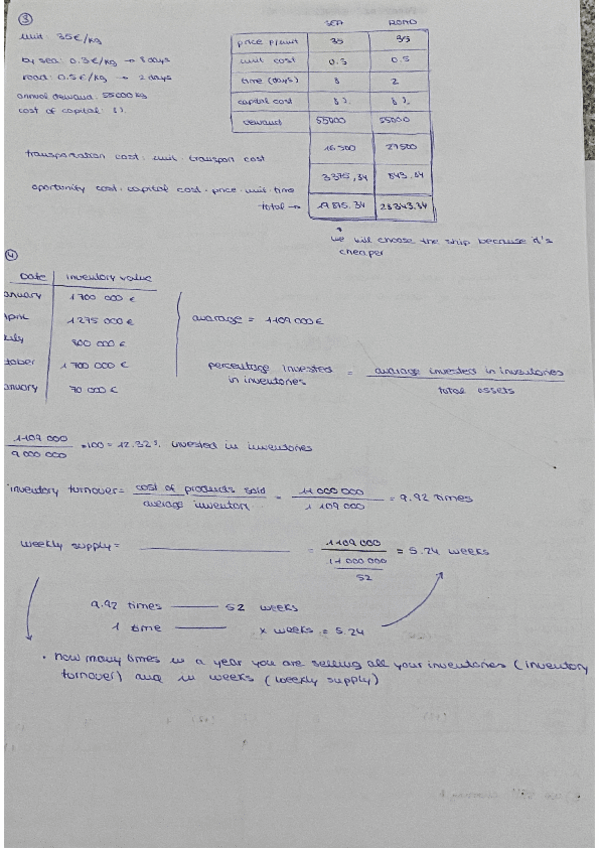 ③
SEA ROAD
unit: 35€/kg
price p/unit 35 35
by sea: 0.3€/kg → 8 days
unit cost 0.5 0.5
road: 0.5€/kg → 2 days
time (days) 8 2
annual demand: 55000 kg
capital cost 8% 8%
cost of capital: 8%
demand 55000 55000
transportation cost: unit · transport cost
16 500 27500
oportunity cost: capital cost · price · unit · time
3375,34 843,84
total → 19875.34 28343.84
we will choose the ship because it's
cheaper
④
Date inventory value
anuary 1 700 000 €
pril 1 275 000 €
uly 800 000 €
tober 1 700 000 €
anuary 70 000 €
average = 1109 000 €
percentage invested in inventories = average invested in inventories / total assets
1109 000 / 9 000 000 · 100 = 12.32% invested in inventories
inventory turnover = cost of products sold / average inventory = 11 000 000 / 1 109 000 = 9.92 times
weekly supply = = 1 109 000 / 11 000 000 / 52 = 5.24 weeks
9.92 times 52 weeks
1 time x weeks = 5.24
· how many times in a year you are selling all your inventories (inventory
turnover) and in weeks (weekly supply)